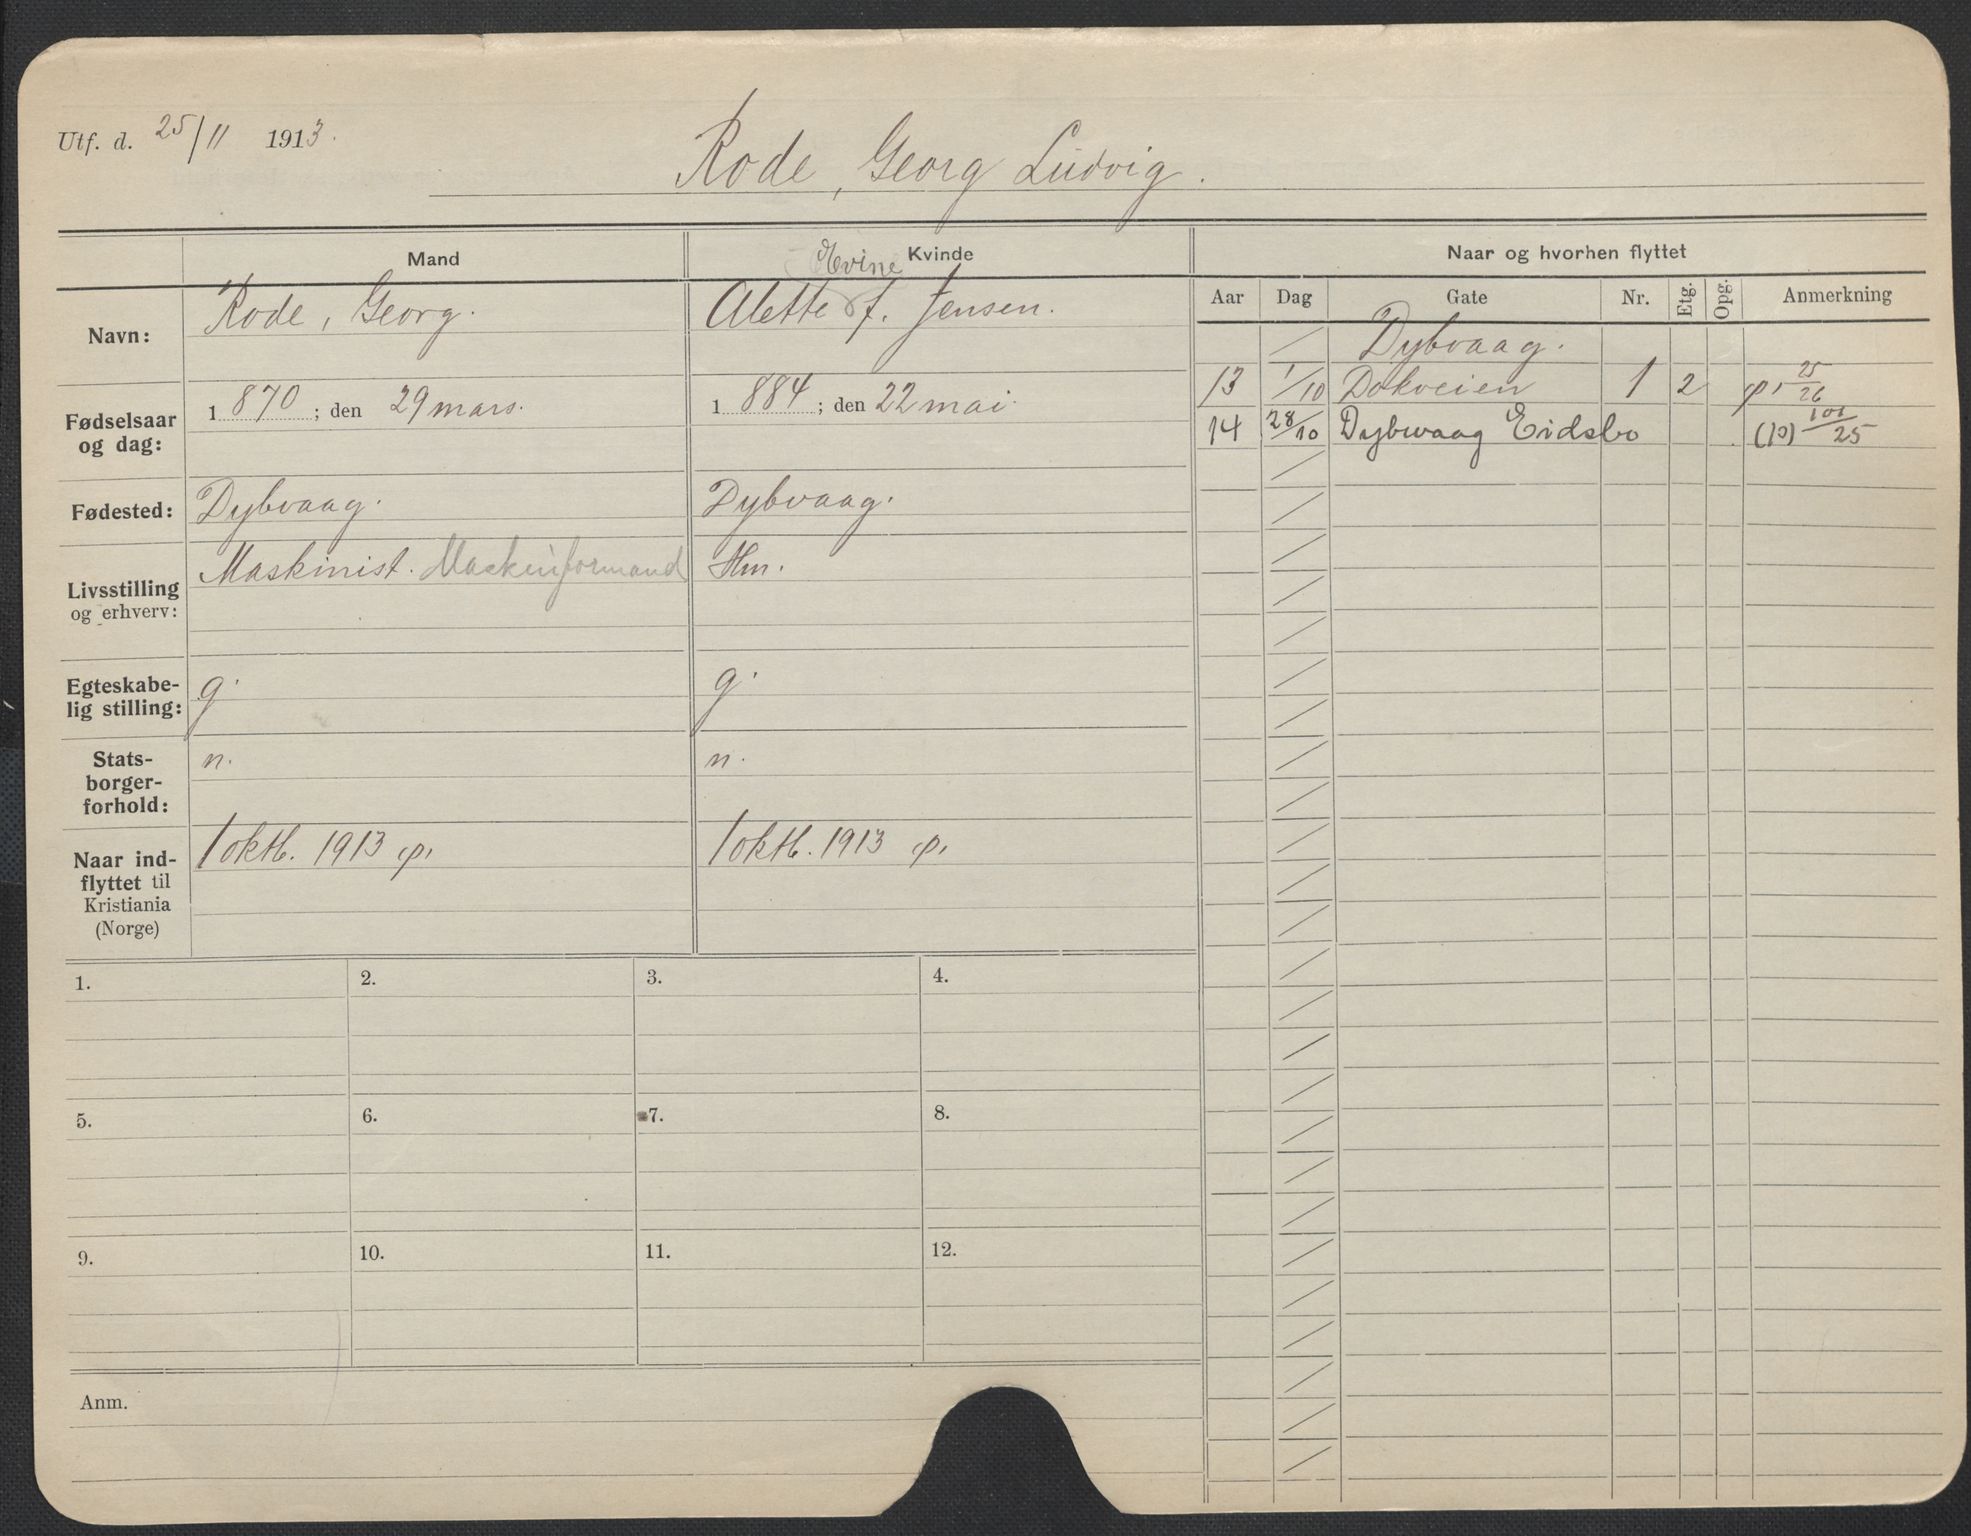 Utf. d. 25/11 1913.
Rode, Georg Ludvig.
Mand
Kvinde
Naar og hvorhen flyttet
Aar Dag Gate Nr. Etg. Opg. Anmerkning
Navn:
Rode, Georg.
Alette f. Jensen.
Fødselsaar
og dag:
1 870 ; den 29 mars.
1 884 ; den 22 mai.
Fødested:
Dybvaag.
Dybvaag.
Livsstilling
og erhverv:
Maskinist. Maskinformand
Hm.
Egteskabe-
lig stilling:
g.
g.
Stats-
borger-
forhold:
n.
n.
Naar ind-
flyttet til
Kristiania
(Norge)
1 oktb. 1913 p.
1 oktb. 1913 p.
Dybvaag.
13 1/10 Dokveien 1 2 p. 25/26
14 28/10 Dybwaag Eidsbo (10) 101/25
1. 2. 3. 4.
5. 6. 7. 8.
9. 10. 11. 12.
Anm.